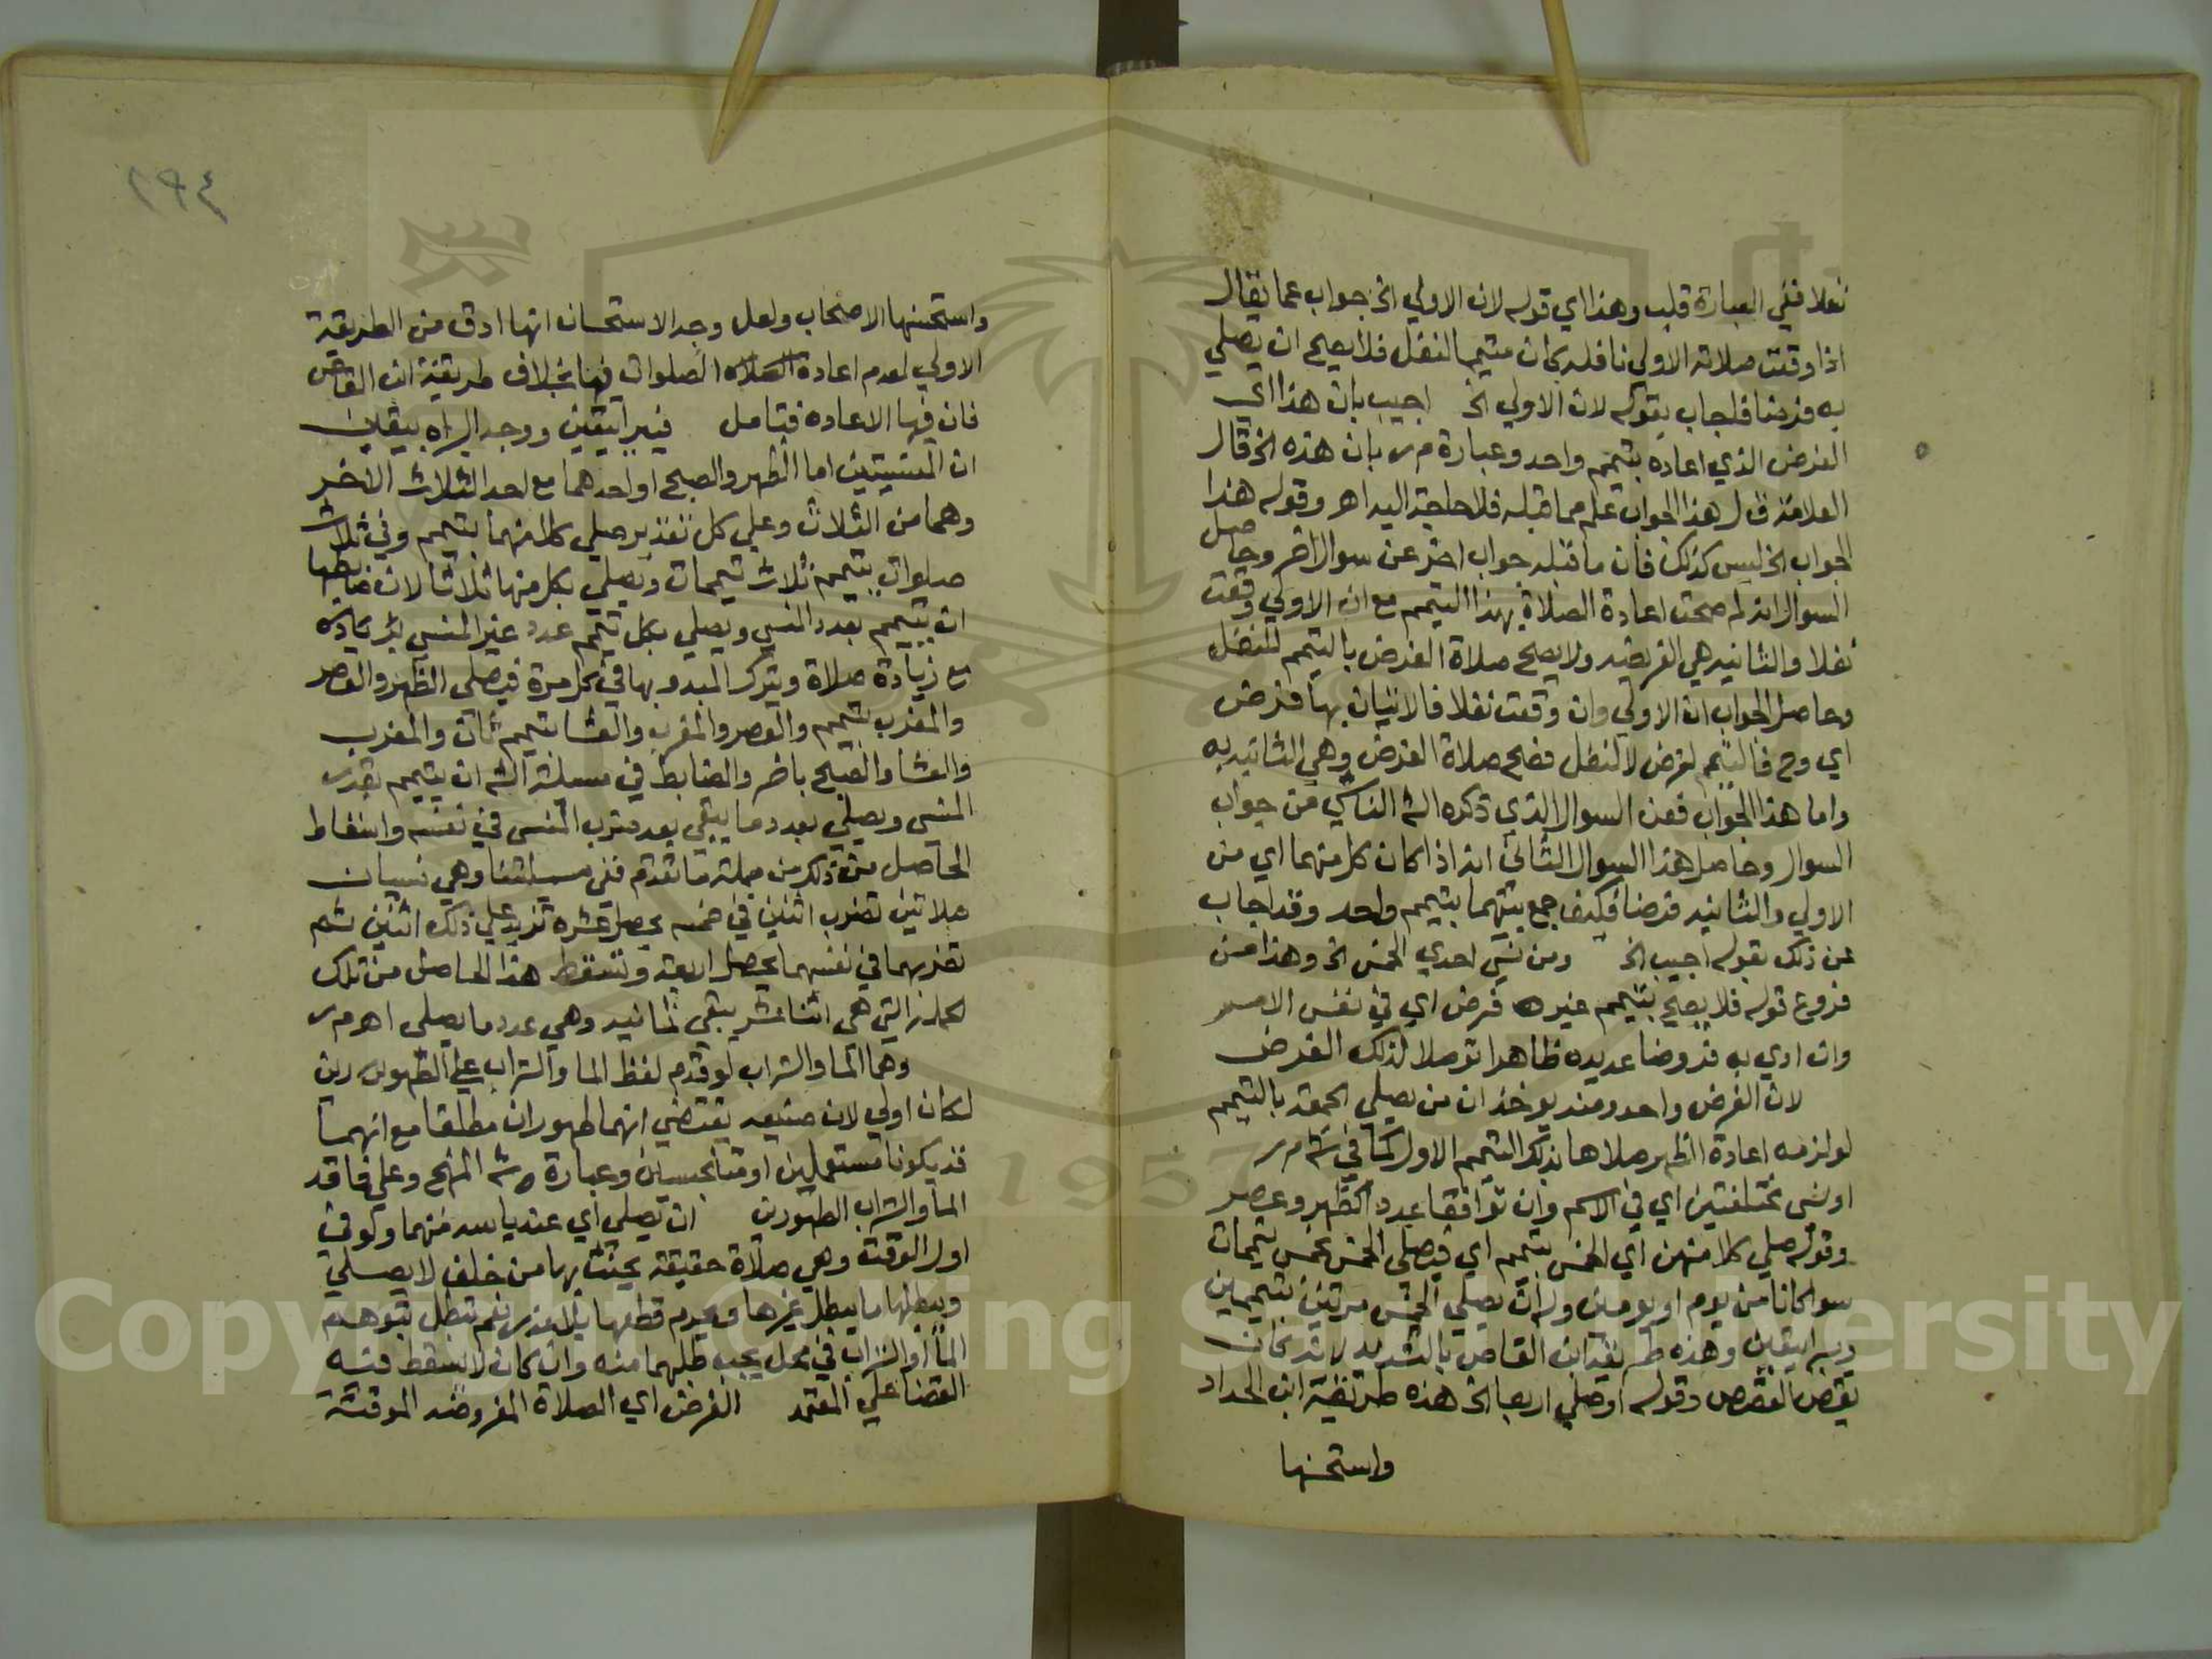 نفلا ففي العبارة قلب وهذا اي قوله لان الاولي الخ جواب عما يقال
اذا وقعت صلاته الاولي نافله كان متيمما لنفل فلا يصح ان يصلي
به فرضا فاجاب بقوله لان الاولي الخ اجيب بان هذا اي
الفرض الذي اعاده بتيمم واحد وعبارة م ر بان هذه الخ قال
العلامة ق ل هذا الجواب علم مما قبله فلا حاجة اليه اهر وقوله هذا
الجواب الخ ليس كذلك فان ما قبله جواب اخر عن سوال اخر وحاصل
السوال انه لم صحت اعادة الصلاة بهذا التيمم مع ان الاولي وقعت
نفلا والثانيه هي الفريضه ولا يصح صلاة الفرض بالتيمم للنفل
وحاصل الجواب ان الاولي وان وقعت نفلا فالاتيان بها فرض
اي وح فالتيمم لفرض لا لنفل فصح صلاة الفرض وهي الثانيه به
واما هذا الجواب فعن السوال الذي ذكره الش الناشي من جواب
السوال وحاصل هذا السوال الثاني انه اذا كان كل منهما اي من
الاولي والثانيه فرضا فكيف جمع بينهما بتيمم واحد وقد اجاب
عن ذلك بقوله اجيب الخ ومن نسي احدي الخمس الخ وهذا من
فروع قوله فلا يصح بتيمم غير فرض اي في نفس الامر
وان ادي به فروضا عديده ظاهرا توصلا لذلك الفرض
لان الفرض واحد ومنه يوخذ ان من يصلي الجمعة بالتيمم
لو لزمه اعادة الظهر صلاها بذلك التيمم الاول كما في ش م ر
او نسي مختلفتين اي في الاسم وان توافقا عددا كظهر وعصر
وقوله صلي كلا منهن اي الخمس بتيمم اي فيصلي الخمس بخمس تيممات
سوا كانا من يوم او يومين وله ان يصلي الخمس مرتين بتيممين
ويبرا بيقين وهذه طريقة ابن القاص بالتشديد لانه كان
يقص القصص وقوله او صلي اربعا الخ هذه طريقة ابن الحداد
واستحسنها
٢٩٤
واستحسنها الاصحاب ولعل وجه الاستحسان انها ادق من الطريقة
الاولي لعدم اعادة الصلوات فيها بخلاف طريقة ابن القاص
فان فيها الاعاده فتامل فيبرا بيقين ووجه البراه بيقين
ان المنسيتين اما الظهر والصبح او احدهما مع احد الثلاث الاخر
وهما من الثلاث وعلي كل تقدير صلي كلا منهما بتيمم وفي ثلاث
صلوات يتيمم ثلاث تيممات ويصلي بكل منها ثلاثا لان ضابطها
ان يتيمم بعدد المنسي ويصلي بكل تيمم عدد غير المنسي بزيادة
مع زيادة صلاة ويترك المبدو بها في كل مرة فيصلي الظهر والعصر
والمغرب بتيمم والعصر والمغرب والعشا بتيمم ثان والمغرب
والعشا والصبح باخر والضابط في مسيلة الش ان يتيمم بقدر
المنسي ويصلي بعدد ما يبقي بعد ضرب المنسي في نفسه واسقاط
الحاصل من ذلك من جملة ما تقدم ففي مسيلتنا وهي نسيان
صلاتين تضرب اثنين في خمسه يحصل عشره تزيد علي ذلك اثنين ثم
تضربهما في نفسهما يحصل اربعة وتسقط هذا الحاصل من تلك
الجملة التي هي اثنا عشر يبقي ثمانيه وهي عدد ما يصلي اهر م ر
وهما الما والتراب لو قدم لفظ الما والتراب علي الطهورين
لكان اولي لان صنيعه يقتضي انهما طهوران مطلقا مع انهما
قد يكونا مستعملين او متنجسين وعبارة ش المنهج وعلي فاقد
الما والتراب الطهورين ان يصلي اي عند ياسه منهما ولو في
اول الوقت وهي صلاة حقيقة يحنث بها من حلف لا يصلي
ويبطلها ما يبطل غيرها ويحرم قطعها بلا عذر نعم تبطل بتوهم
الما او التراب في محل يجب طلبهما منه وان كان لا يسقط فيه
القضا علي المعتمد الفرض اي الصلاة المفروضه الموقتة
Copyright © King Saud University
1957